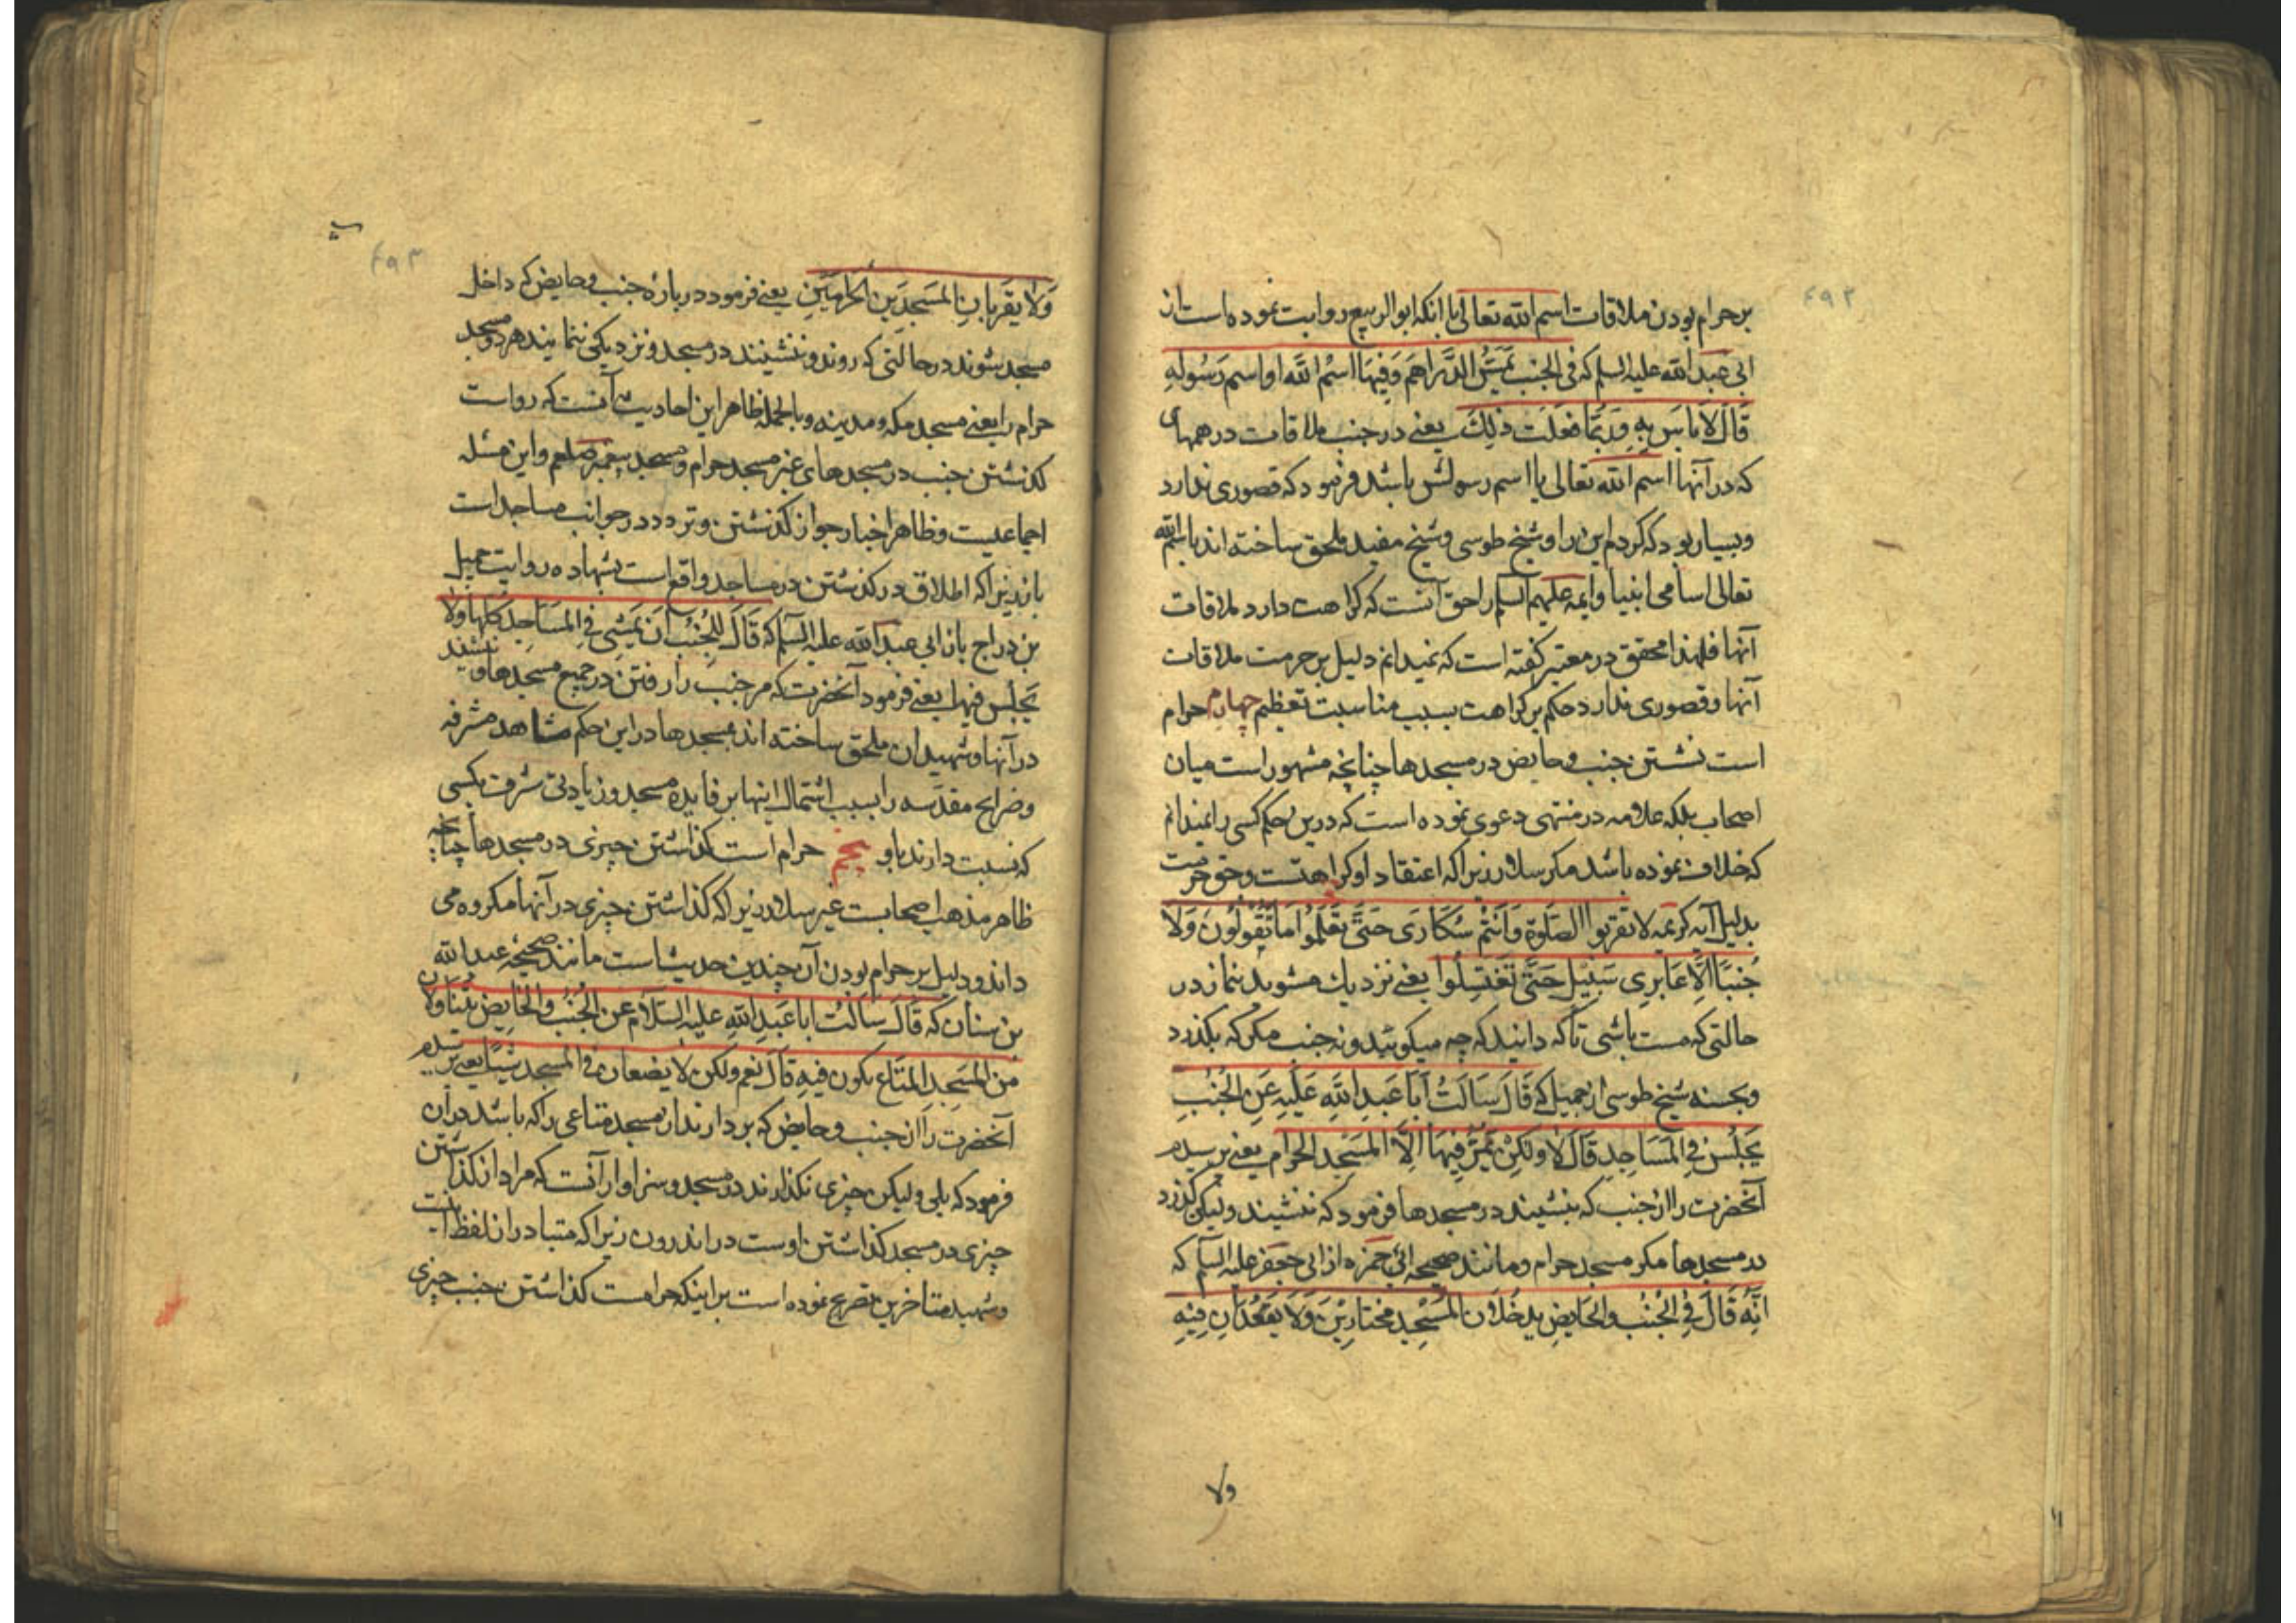 ۶۹۲
بر حرام بودن ملاقات اسم الله تعالی با انکه ابو الربیع روایت نموده است از
ابی عبد الله علیه السلم که فی الجنب یمس الدراهم وفیها اسم الله او اسم رسوله
قال لا باس به وربما فعلت ذلک یعنے در جنب ملاقات درهمهای
که در آنها اسم الله تعالی یا اسم رسولش باشد فرمود که قصوری ندارد
وبسیار بود که کردم این را وشیخ طوسی وشیخ مفید ملحق ساخته اند باسم الله
تعالی اسامی انبیا وایمه علیهم السلم را حق آنست که کراهت دارد ملاقات
آنها فلهذا محقق در معتبر کفته است که نمیدانم دلیل بر حرمت ملاقات
آنها وقصوری ندارد حکم بر کراهت بسبب مناسبت تعظیم چهارم حرام
است نشستن جنب وحایض در مسجدها چنانچه مشهور است میان
اصحاب بلکه علامه در منتهی دعوی نموده است که درین حکم کسی را نمیدانم
که خلاف نموده باشد مکر سلار زیرا که اعتقاد او کراهتست وحق حرمت
بدلیل آیه کریمه لا تقربوا الصلوة وَاَنتُم سُکَارَی حَتَّی تَعلَمُوا مَا تَقُولُونَ وَلَا
جُنبًا اِلَّا عَابِرِی سَبِیل حَتَّی تَغتَسِلُوا یعنے نزدیك مشوید نماز در
حالتی که مست باشی تا که دانید که چه میکوئید ونه جنب مکر که بکذرد
وبحسنه شیخ طوسی از جمیل که قَالَ سَالتُ اَبَا عَبدِ اللهِ عَلَیهِ عَنِ الجُنُبِ
یَجلِسُ فِی المَسَاجِدِ قَالَ لَا ولکِن یَمُرُّ فِیهَا اِلَّا المَسجِدَ الحرام یعنے پرسیدم
آنحضرت را از جنب که بنشیند در مسجدها فرمود که ننشیند ولیکن کذرد
در مسجدها مکر مسجد حرام ومانند صحیحه ابی حمزه از ابی جعفر علیه السلم که
انّه قَالَ فِی الجُنُبِ والحایضِ یدخُلانِ المَسجِدَ مختارین وَلَا یَقعُدَانِ فِیهِ
ولا
۶۹۳
وَلَا یَقرَبانِ المَسجِدَینِ الحَرامَینِ یعنے فرمود درباره جنب وحایض که داخل
مسجد شوند در حالتی که روند وننشینند در مسجد ونزدیکی ننمایند هر دو مسجد
حرام را یعنے مسجد مکه ومدینه وبالجمله ظاهر این احادیث آنست که رواست
کذشتن جنب در مسجدهای غیر مسجد حرام ومسجد پیغمبر صلعم واین مسئله
اجماعیست وظاهر اخبار جواز کذشتن وتردد در جوانب مساجد است
زیرا که اطلاق در کذشتن در مساجد واقع است بشهاده روایت جمیل
بن دراج از ابی عبد الله علیه السلم که قَالَ لِلجُنُبِ اَن یَمشِی فِی المَسَاجِدِ کلها ولا
یَجلِسُ فیها یعنے فرمود آنحضرت که مر جنب را رفتن در جمیع مسجدها وننشیند
در آنها وشهیدان ملحق ساخته اند بمسجدها در این حکم مشاهد مشرفه
وضرایح مقدسه را بسبب اشتمال اینها بر فایده مسجد وزیادتی شرف بکسی
که نسبت دارند باو پنجم حرام است کذاشتن چیزی در مسجدها چنانچه
ظاهر مذهب اصحابست غیر سلار زیرا که کذاشتن چیزی در آنها مکروه می
داند ودلیل بر حرام بودن آن چندین حدیث است مانند صحیحه عبد الله
بن سنان که قَالَ سَالتُ ابا عَبدِ اللهِ علیه السَّلام عن الجُنُبِ والحَایِضِ یتناولان
من المسجدِ المَتَاعَ یکون فیهِ قَالَ نعم ولکن لا یضعان فی المسجد شیئا یعنے پرسیدم
آنحضرت را از جنب وحایض که بردارند از مسجد متاعی را که باشد در آن
فرمود که بلی ولیکن چیزی نکذارند در مسجد وسزاوار آنست که مراد از کذاشتن
چیزی در مسجد کذاشتن اوست در اندرون زیرا که متبادر از لفظ اینست
وشهید متاخرین تصریح نموده است بر اینکه حرامست کذاشتن جنب چیزی